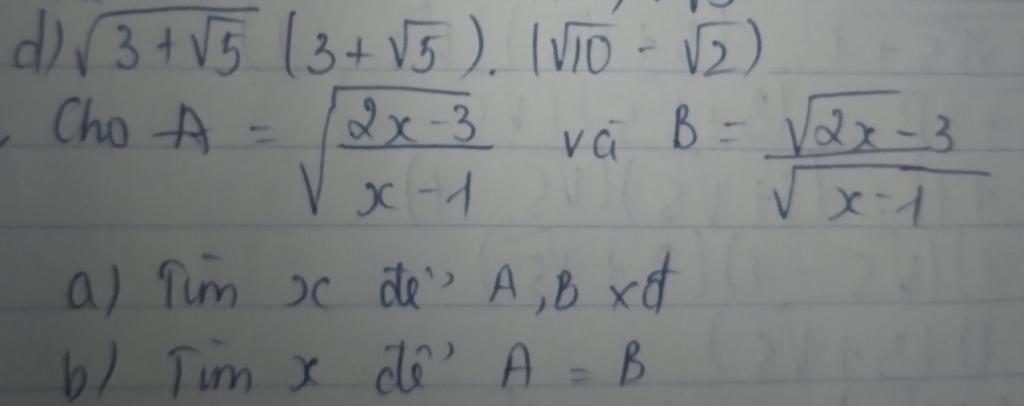 d) √(3+√5) (3+√5).(√10 - √2)
Cho A = √((2x-3)/(x-1)) và B = (√2x-3)/√(x-1)
a) Tìm x để A,B xđ
b) Tìm x để A = B